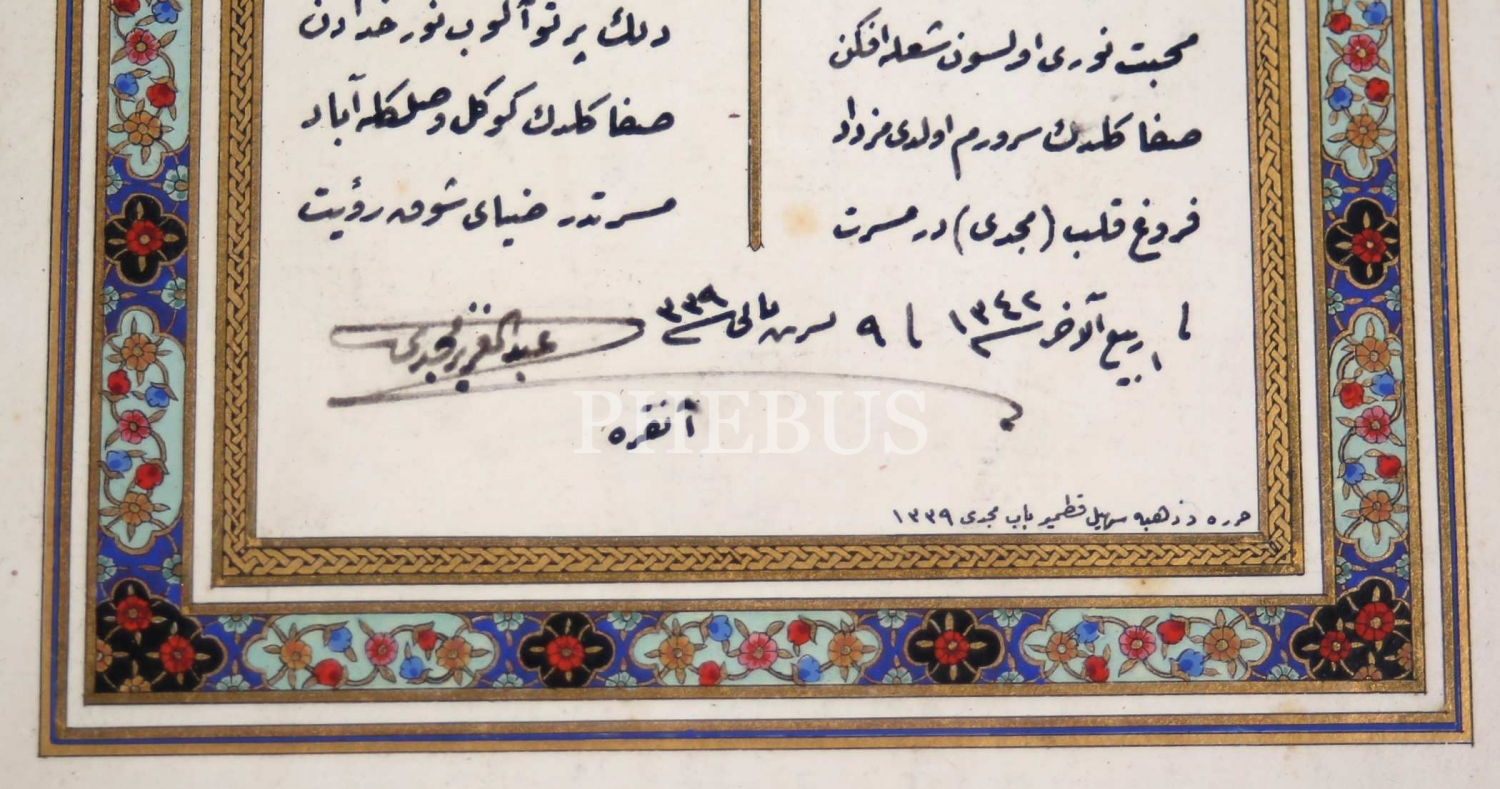 محبت نوری اولسون شعله افکن
دلك پرتو آلوب نور خدادن
صفا كلدك سرورم اولدی مزداد
صفا كلدك كوكل وصلكله آباد
فروغ قلب (مجدی) در مسرت
مسرتدر ضیای شوق رؤیت
ربیع الآخر ١٣٤٢
٩ تشرین ثانی ٣٣٩
عبدالعزیز مجدی
آنقره
PHEBUS
حرره و ذهبه سهیل قطمیر باب مجدی ١٣٣٩